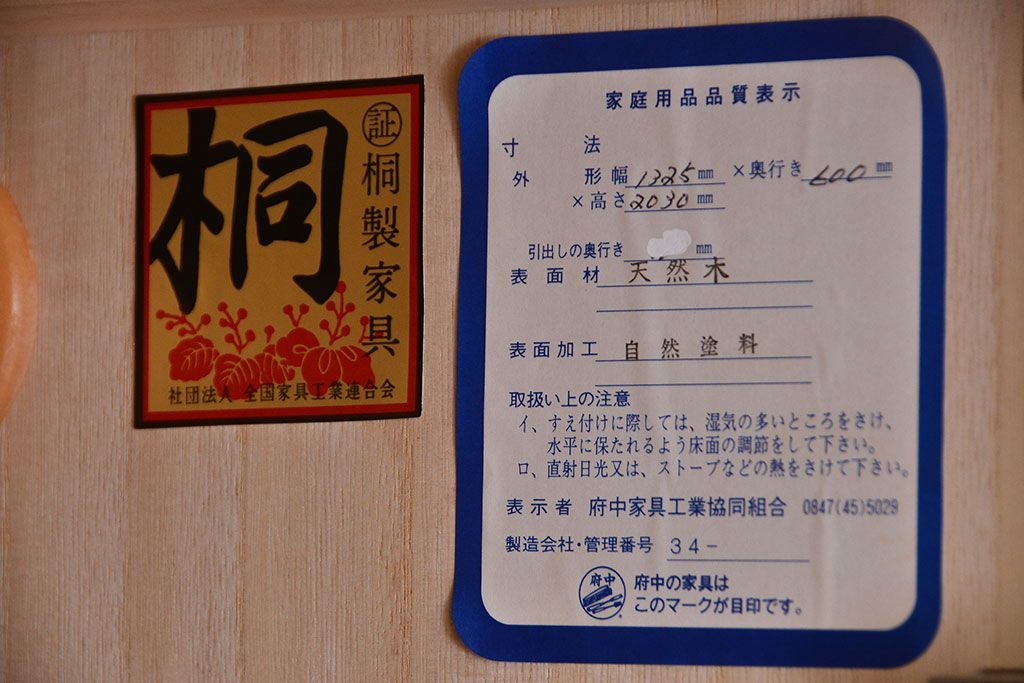 桐
証
桐製家具
社団法人 全国家具工業連合会
家庭用品品質表示
寸法
外形幅 1325 mm ×奥行き 600 mm
×高さ 2030 mm
引出しの奥行き mm
表面材 天然木
表面加工 自然塗料
取扱い上の注意
イ、すえ付けに際しては、湿気の多いところをさけ、
水平に保たれるよう床面の調節をして下さい。
ロ、直射日光又は、ストーブなどの熱をさけて下さい。
表示者 府中家具工業協同組合 0847(45)5029
製造会社・管理番号 34-
府中
府中の家具は
このマークが目印です。